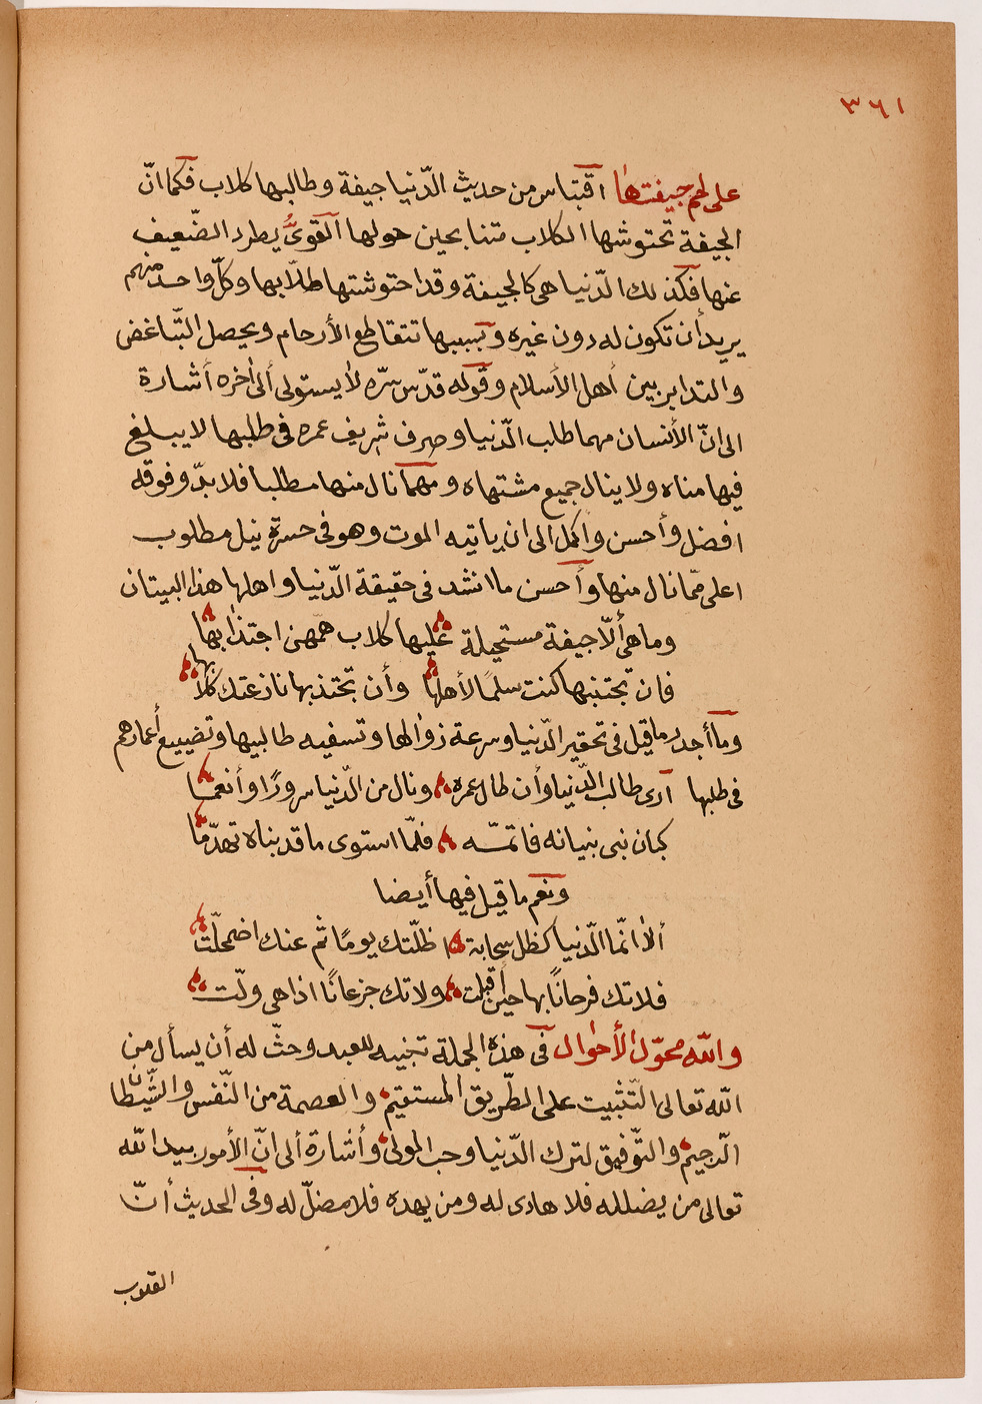 ٣٦١
على لحم جيفتها اقتباس من حديث الدّنيا جيفة وطالبها كلاب فكما انّ
الجيفة تحتوشها الكلاب متنابحين حولها القوىُّ يطرد الضّعيف
عنها فكذلك الدّنيا هى كالجيفة وقد احتوشتها طلّابها وكلّ واحد منهم
يريد أن تكون له دون غيره وبسببها تتقاطع الأرحام ويحصل التّباغض
والتدابر بين أهل الأسلام وقوله قدّس سرّه لا يستولى ألى أخره أشارة
الى انّ الأنسان مهما طلب الدّنيا وصرف شريف عمره فى طلبها لا يبلغ
فيها مناه ولا ينال جميع مشتهاه ومهما نال منها مطلبا فلا بدّ وفوقه
افضل وأحسن وأكمل الى ان ياتيه الموت وهو فى حسرة نيل مطلوب
اعلى ممّا نال منها وأحسن ما انشد فى حقيقة الدّنيا واهلها هذا البيتان
وما هى ألّا جيفة مستحيلة عليها كلاب همّهن اجتذابها
فان تجتنبها كنت سلمًا لأهلها وأن تجتذبها نازعتك كلابها
وما أجدر ما قيل فى تحقير الدّنيا وسرعة زوالها وتسفيه طالبيها وتضييع أعمارهم
فى طلبها أرى طالب الدّنيا وأن طال عمره ونال من الدّنيا سرورًا وأنعما
كبان بنى بنيانه فاتمّه فلمّا استوى ما قد بناه تهدّما
ونعم ما قيل فيها أيضا
ألا انّما الدّنيا كظل سحابة اظلّتك يومًا ثم عنك اضمحلّت
فلا تك فرحانًا بها حين أقبلت ولا تك جزعانًا اذا هى ولّت
والله محوّل الأحوال فى هذه الجملة تنبيه للعبد وحثّ له أن يسأل من
الله تعالى التّثبيت على الطّريق المستقيم والعصمة من النّفس والشّيطان
الرّجيم والتّوفيق لترك الدّنيا وحب المولى وأشارة ألى انّ الأمور بيد الله
تعالى من يضلله فلا هادى له ومن يهده فلا مضلّ له وفى الحديث أنّ
القلوب